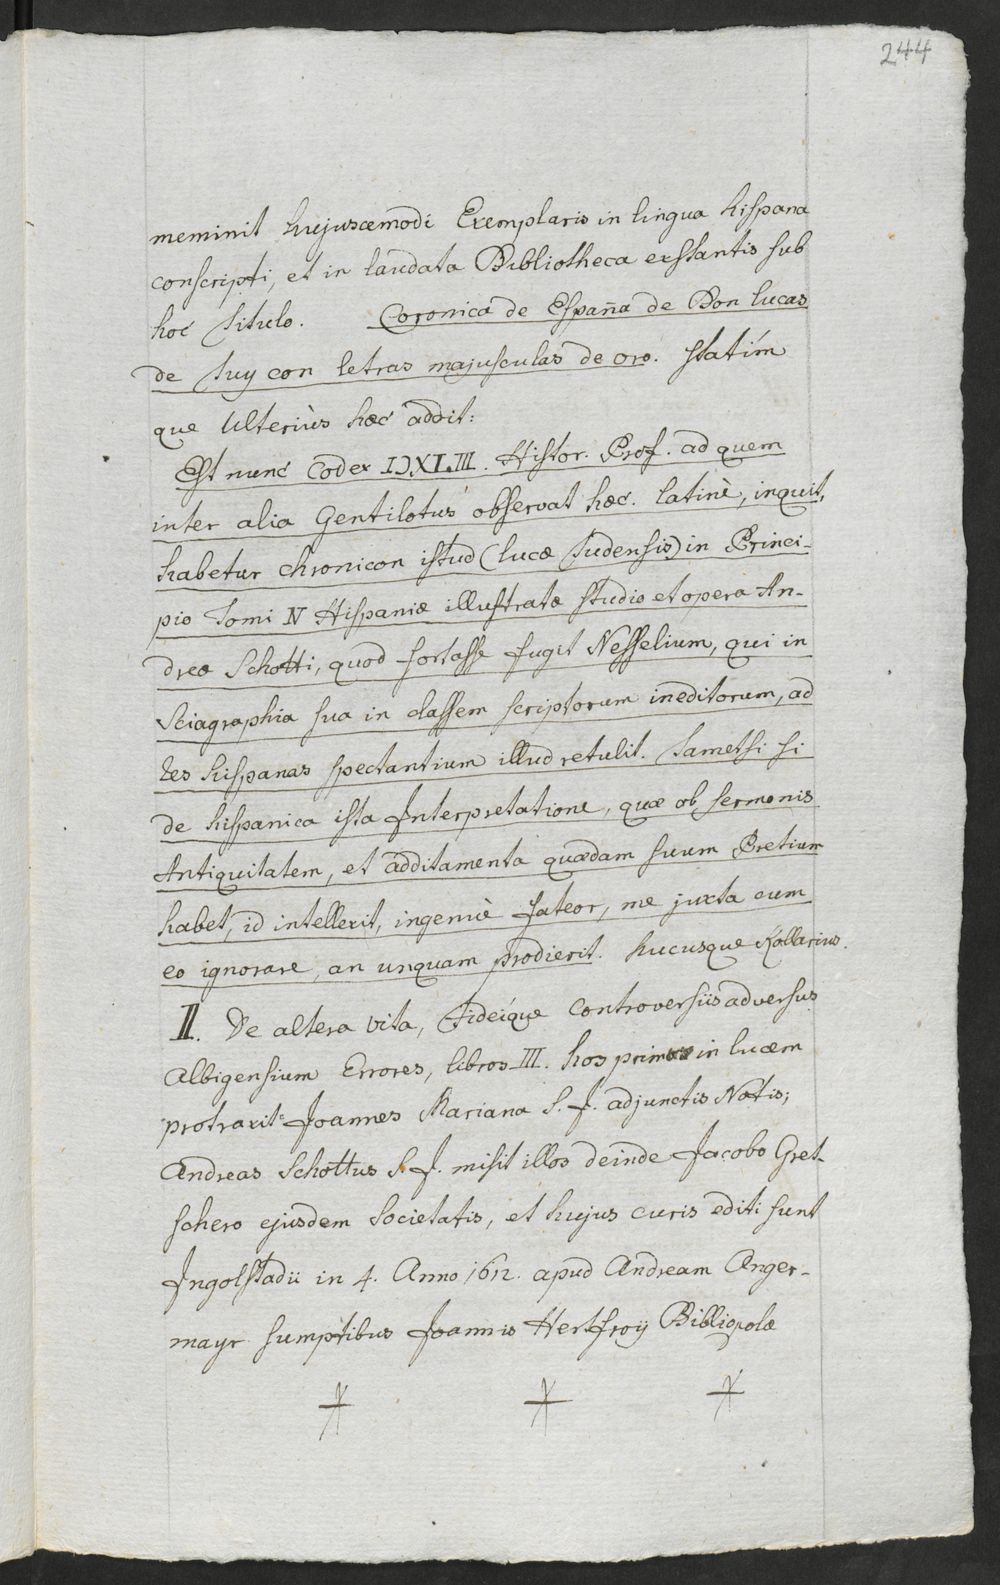 244
meminit hujuscemodi Exemplaris in lingua hispana
conscripti, et in laudata Bibliotheca exstantis sub
hoc titulo. Coronica de España de Don Lucas
de Tuy con letras majusculas de oro. statím
que Ulteriùs hæc addit:
Est nunc Codex IƆXLIII. Histor. Prof. ad quem
inter alia Gentilotus observat hæc. latinè, inquit,
habetur chronicon istud (lucæ tudensis) in Princi-
pio Tomi IV Hispaniæ illustratæ studio et opera An-
dreæ Schotti, quod fortasse fugit Nesselium, qui in
Sciagraphia sua in classem scriptorum ineditorum, ad
res hispanas spectantium illud retulit. Tametsi si
de hispanica ista Interpretatione, quæ ob sermonis
Antiquitatem, et additamenta quædam suum Pretium
habet, id intellexit, ingenuè fateor, me juxta cum
eo ignorare, an unquam prodierit. hucusque Kollarius.
II. De altera vita, fideíque controversiis adversus
Albigensium Errores, libros III. hos primus in lucem
protraxit Joannes Mariana S. J. adjunctis Notis;
Andreas Schottus S. J. misit illos deinde Jacobo Gret-
schero ejusdem Societatis, et hujus curis editi sunt
Ingolstadii in 4. Anno 1612. apud Andream Anger-
mayr sumptibus Joannis Hertsroy Bibliopolæ